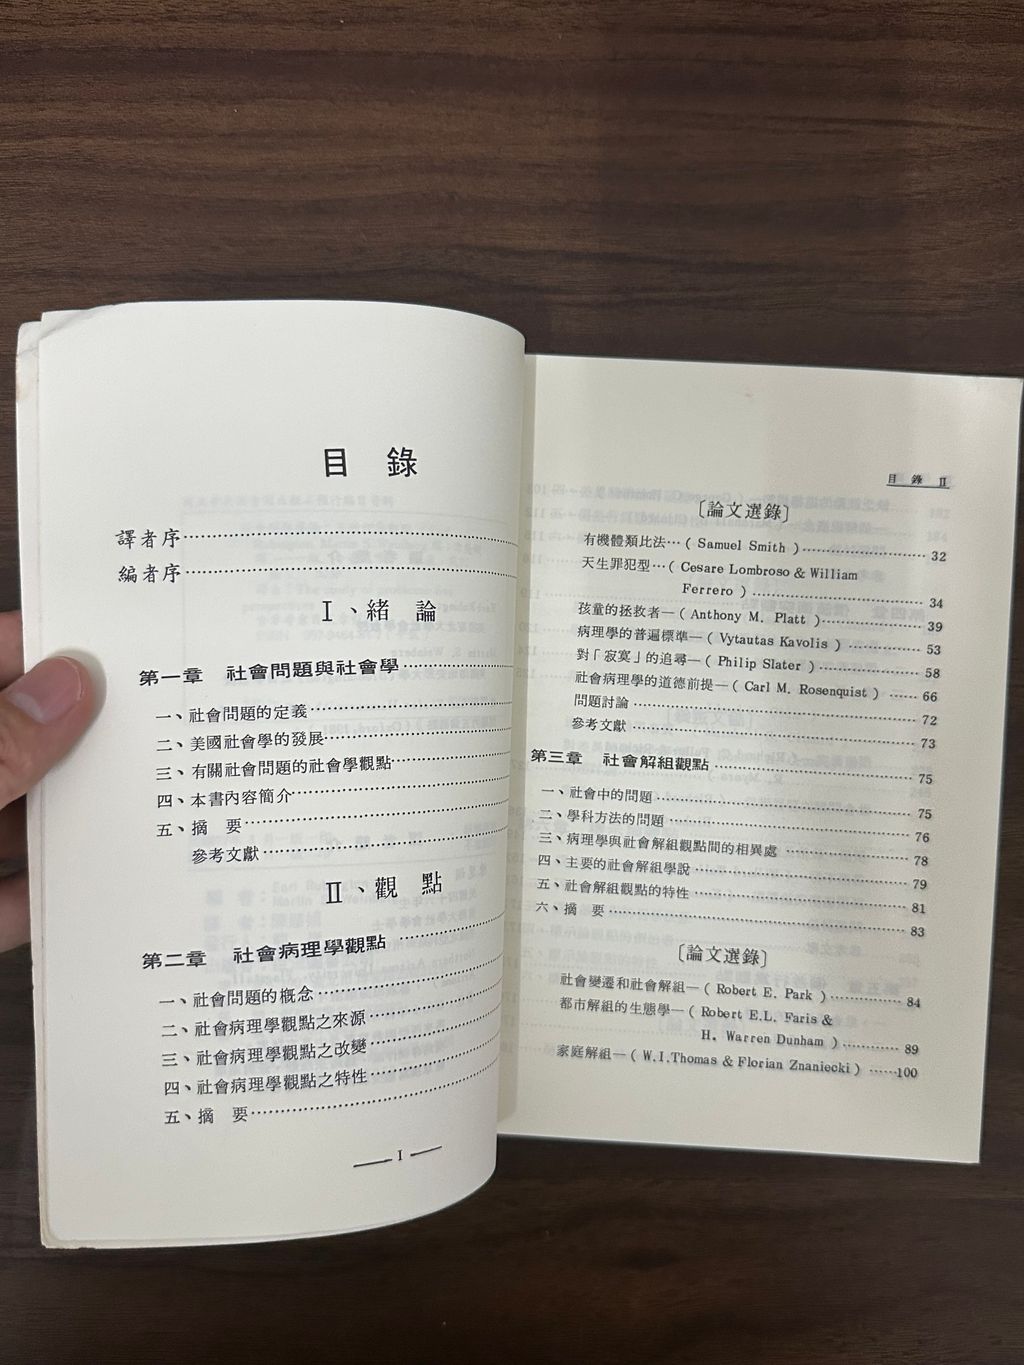 目 錄
譯者序
編者序
I、緒 論
第一章 社會問題與社會學
一、社會問題的定義
二、美國社會學的發展
三、有關社會問題的社會學觀點
四、本書內容簡介
五、摘 要
參考文獻
II、觀 點
第二章 社會病理學觀點
一、社會問題的概念
二、社會病理學觀點之來源
三、社會病理學觀點之改變
四、社會病理學觀點之特性
五、摘 要
— I —
目 錄 II
〔論文選錄〕
有機體類比法…( Samuel Smith ) 32
天生罪犯型…( Cesare Lombroso & William
Ferrero ) 34
孩童的拯救者—( Anthony M. Platt ) 39
病理學的普遍標準—( Vytautas Kavolis ) 53
對「寂寞」的追尋—( Philip Slater ) 58
社會病理學的道德前提—( Carl M. Rosenquist ) 66
問題討論 72
參考文獻 73
第三章 社會解組觀點 75
一、社會中的問題 75
二、學科方法的問題 76
三、病理學與社會解組觀點間的相異處 78
四、主要的社會解組學說 79
五、社會解組觀點的特性 81
六、摘 要 83
〔論文選錄〕
社會變遷和社會解組—( Robert E. Park ) 84
都市解組的生態學—( Robert E.L. Faris &
H. Warren Dunham ) 89
家庭解組—( W.I.Thomas & Florian Znaniecki ) 100